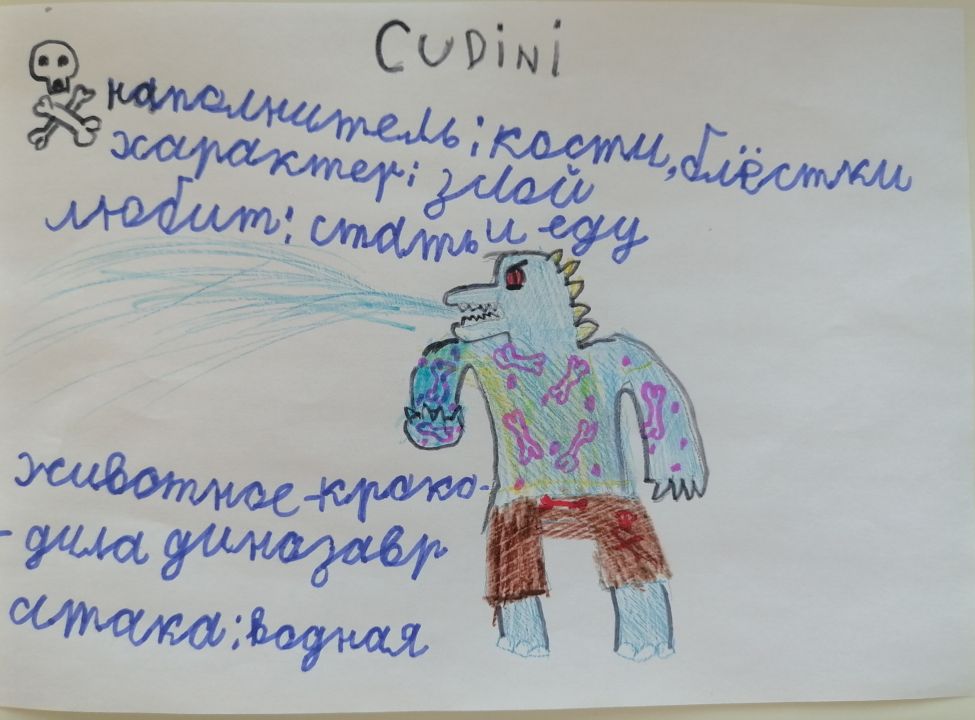 CUDiNi
наполнитель: кости, блёстки
характер: злой
любит: спать и еду
животное-крако-
-дила динозавр
атака: водная